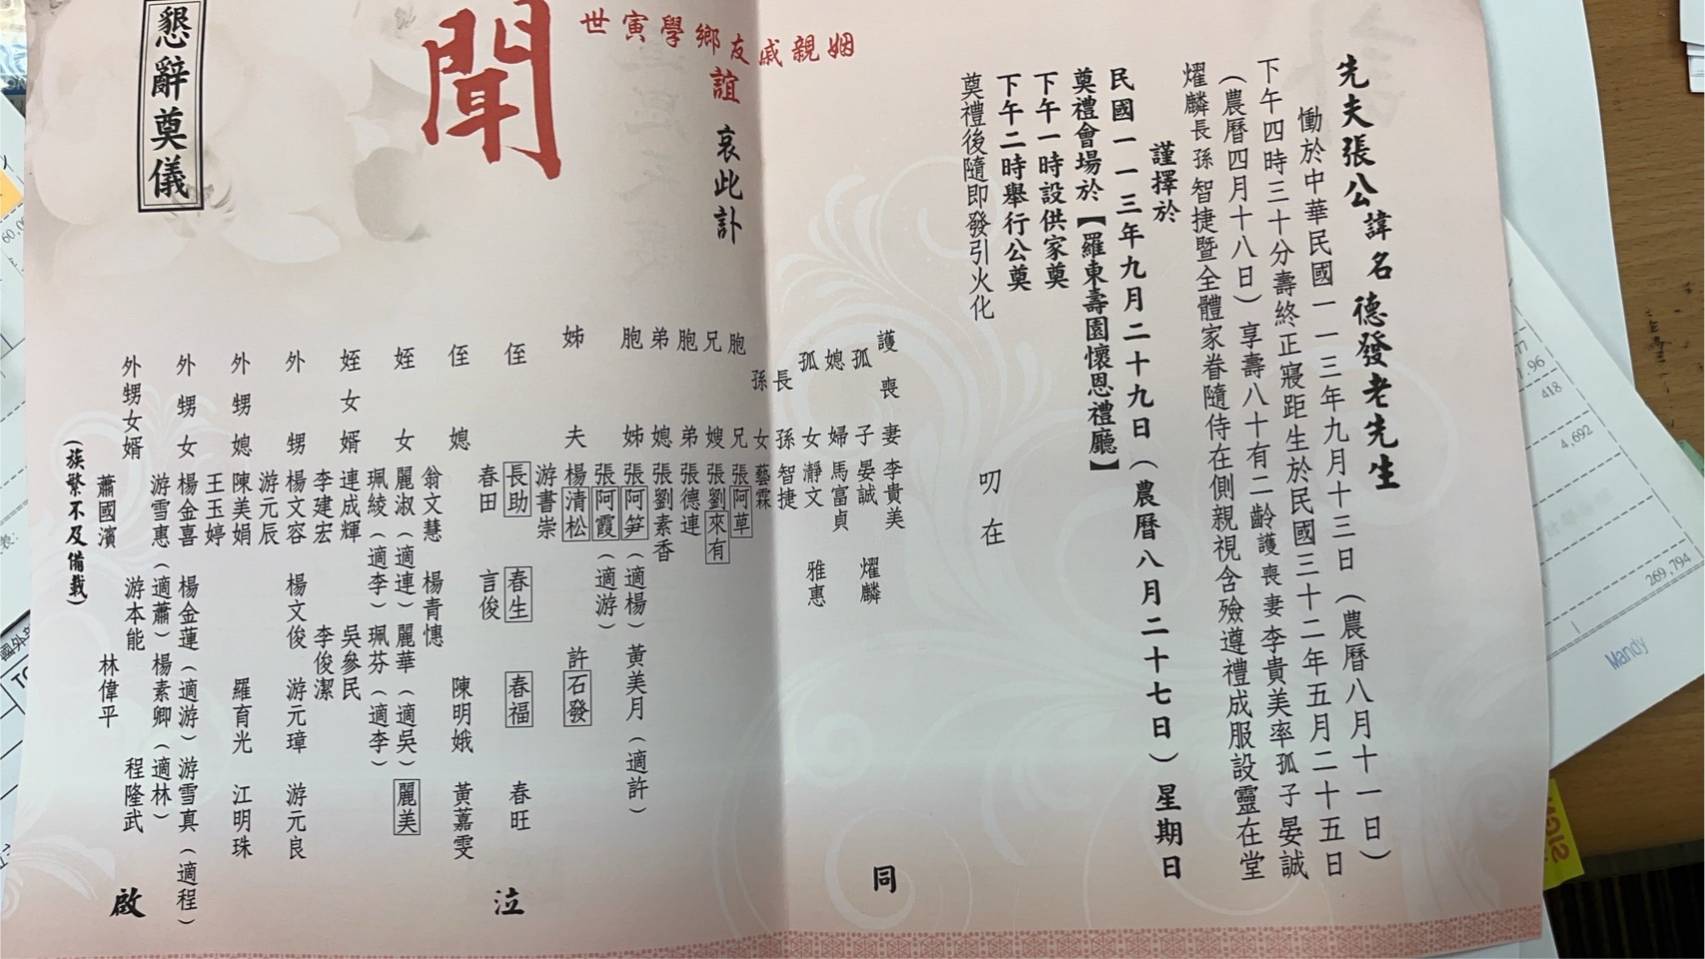 先夫張公諱名德發老先生
慟於中華民國一一三年九月十三日（農曆八月十一日）
下午四時三十分壽終正寢距生於民國三十二年五月二十五日
（農曆四月十八日）享壽八十有二齡護喪妻李貴美率孤子晏誠
燿麟長孫智捷暨全體家眷隨侍在側親視含殮遵禮成服設靈在堂
謹擇於
民國一一三年九月二十九日（農曆八月二十七日）星期日
奠禮會場於【羅東壽園懷恩禮廳】
下午一時設供家奠
下午二時舉行公奠
奠禮後隨即發引火化
叨在
姻親戚友鄉學寅世
誼
哀此訃
聞
懇辭奠儀
護喪妻 李貴美
孤子 晏誠 燿麟
媳婦 馬富貞
孤女 瀞文 雅惠
長孫 智捷
孫女 藝霖
胞兄 張阿草
兄嫂 張劉來有
胞弟 張德連
弟媳 張劉素香
胞姊 張阿笋（適楊）黃美月（適許）
張阿霞（適游）
姊夫 楊清松 許石發
游書崇
侄 長助 春生 春福 春旺
春田 言俊
侄媳 翁文慧 楊青憓 陳明娥 黃嘉雯
姪女 麗淑（適連）麗華（適吳）麗美
珮綾（適李）珮芬（適李）
姪女婿 連成輝 吳參民
李建宏 李俊潔
外甥 楊文容 楊文俊 游元璋 游元良
游元辰
外甥媳 陳美娟 羅育光 江明珠
王玉婷
外甥女 楊金喜 楊金蓮（適游）游雪真（適程）
游雪惠（適蕭）楊素卿（適林）
外甥女婿 游本能 程隆武
蕭國濱 林偉平
（族繁不及備載）
同
泣
啟
Mandy
1.96
418
4,692
269,794